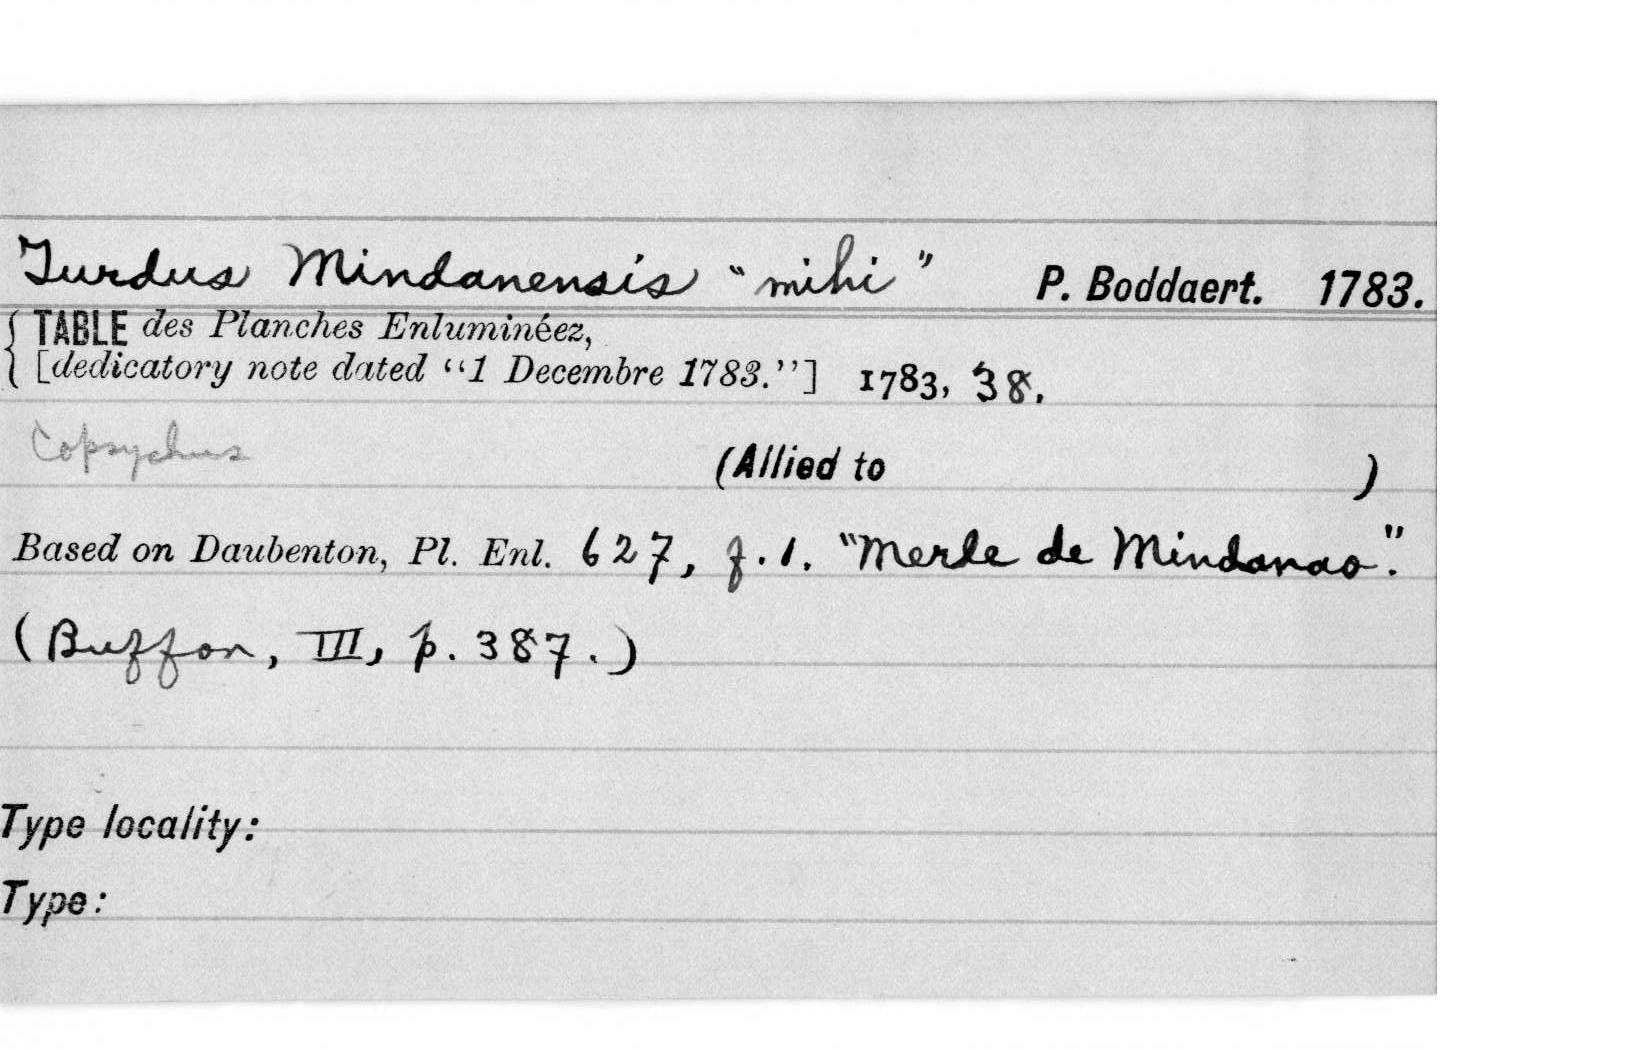 Turdus Mindanensis "mihi" P. Boddaert. 1783.
TABLE des Planches Enluminéez,
[dedicatory note dated "1 Decembre 1783."] 1783, 38.
Copsychus (Allied to )
Based on Daubenton, Pl. Enl. 627, f.1. "Merle de Mindanao".
(Buffon, III, p. 387.)
Type locality:
Type: